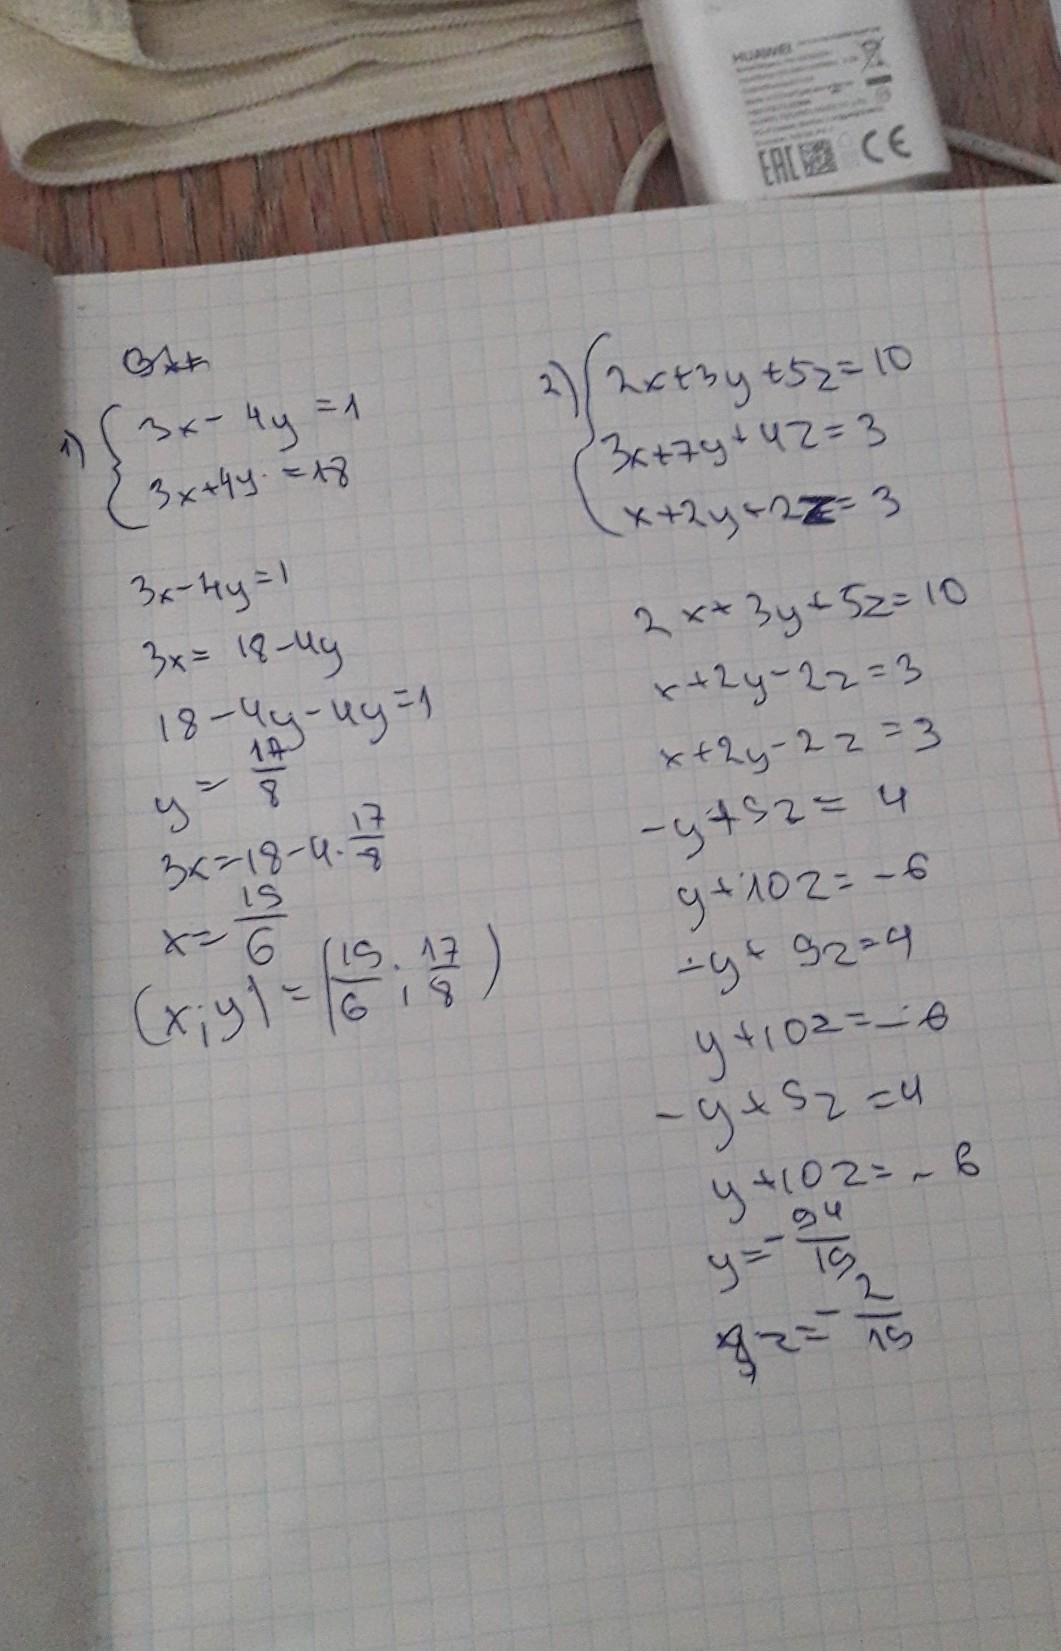 HUAWEI
EAC CE
1) 3x - 4y = 1
3x + 4y = 18
3x - 4y = 1
3x = 18 - 4y
18 - 4y - 4y = 1
y = 17/8
3x = 18 - 4 · 17/8
x = 19/6
(x; y) = (19/6; 17/8)
2) 2x + 3y + 5z = 10
3x + 7y + 4z = 3
x + 2y + 2z = 3
2x + 3y + 5z = 10
x + 2y - 2z = 3
x + 2y - 2z = 3
-y + 9z = 4
y + 10z = -6
-y + 9z = 4
y + 10z = -6
-y + 9z = 4
y + 10z = -6
y = - 94/19
z = - 2/19